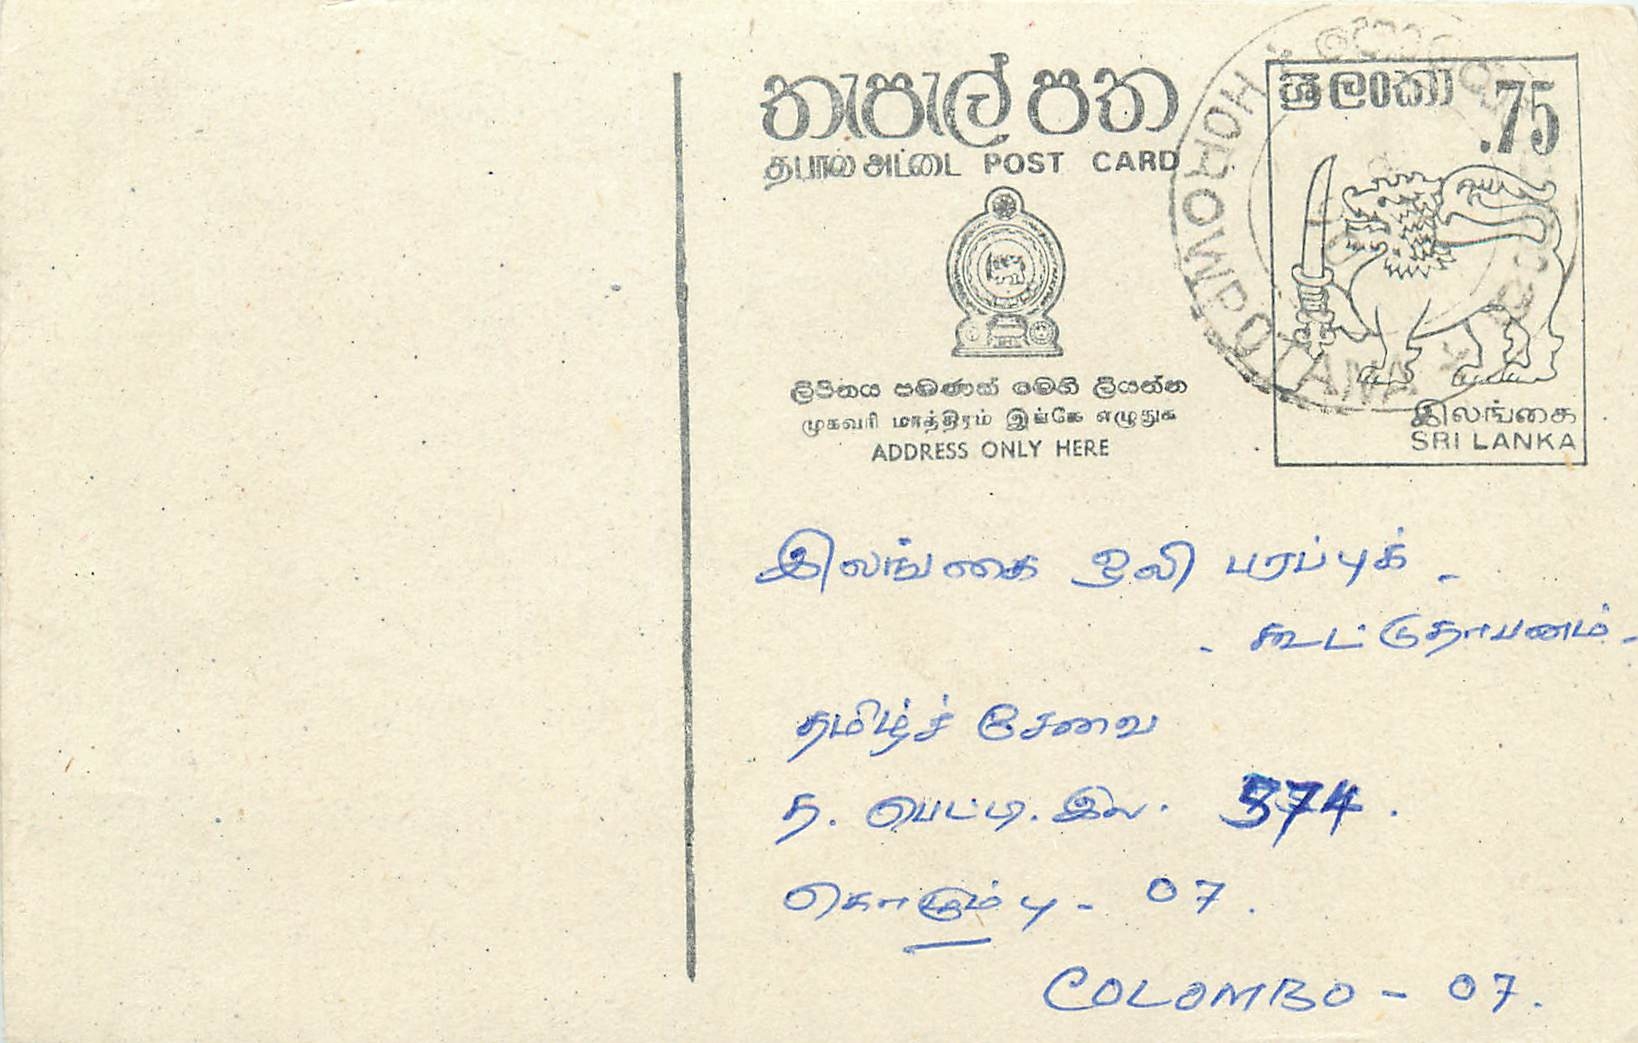 තැපැල් පත
தபால் அட்டை POST CARD
ශ්‍රී ලංකා .75
HOROWPOTANA
இலங்கை
SRI LANKA
ලිපිනය පමණක් මෙහි ලියන්න
முகவரி மாத்திரம் இங்கே எழுதுக
ADDRESS ONLY HERE
இலங்கை ஒலி பரப்புக் -
- கூட்டுதாபனம் -
தமிழ்ச் சேவை
த. பெட்டி. இல. 574.
கொழும்பு - 07.
COLOMBO - 07.